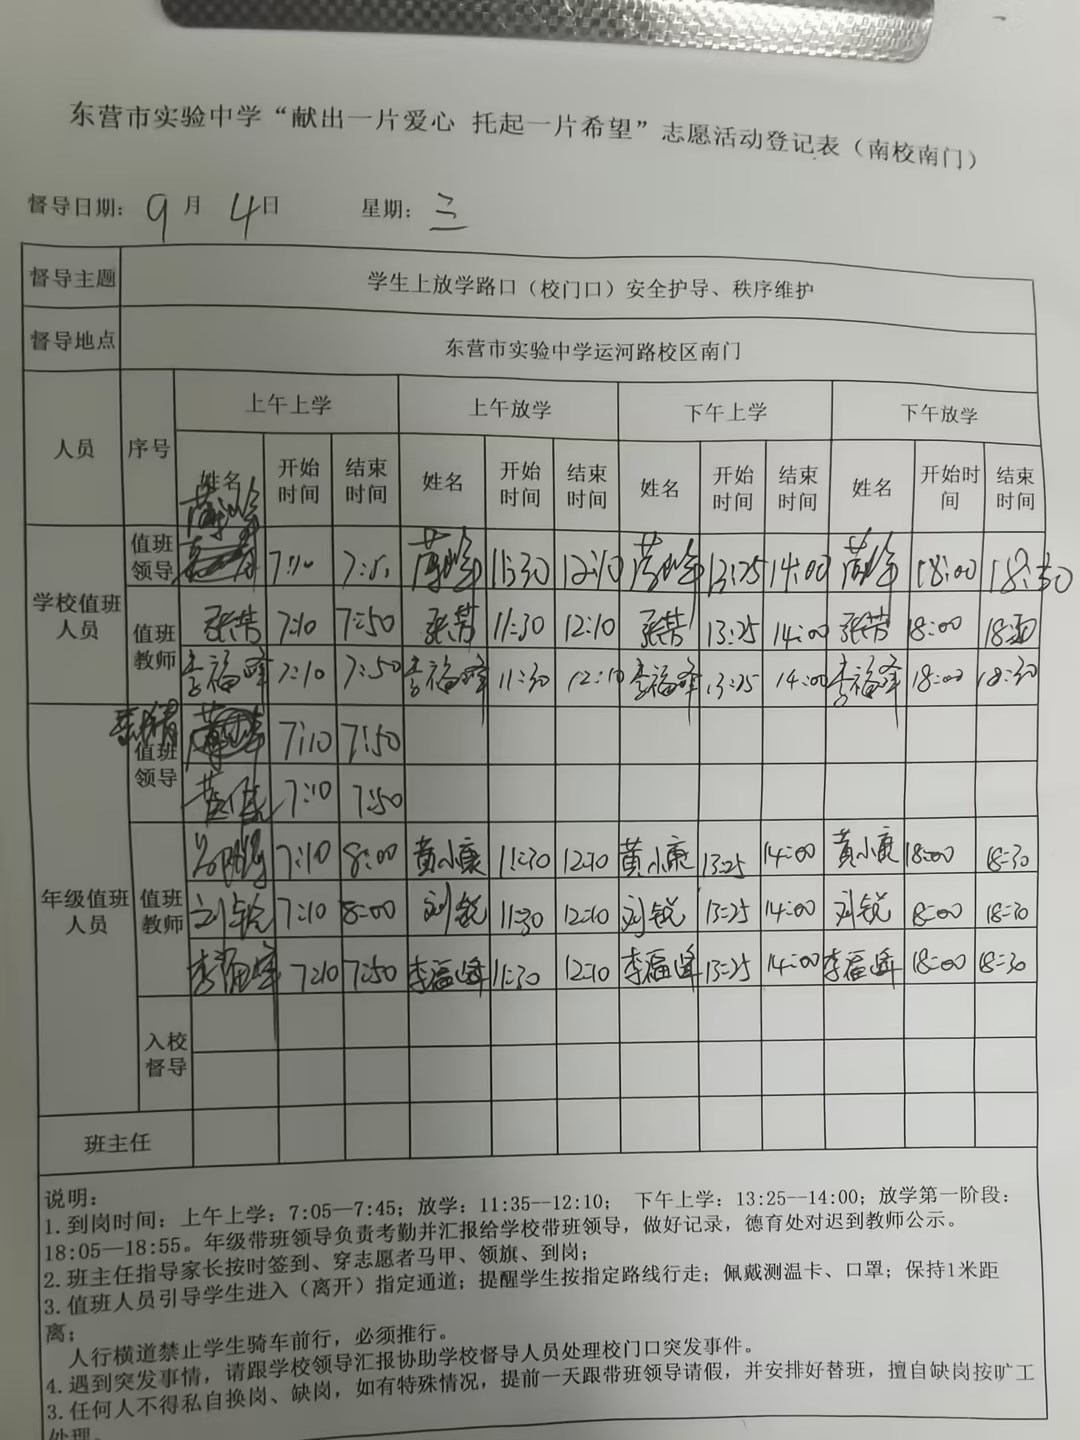 东营市实验中学“献出一片爱心 托起一片希望”志愿活动登记表（南校南门）
督导日期：9月4日 星期：三
督导主题 学生上放学路口（校门口）安全护导、秩序维护
督导地点 东营市实验中学运河路校区南门
人员 序号 上午上学 上午放学 下午上学 下午放学
姓名 开始时间 结束时间 姓名 开始时间 结束时间 姓名 开始时间 结束时间 姓名 开始时间 结束时间
学校值班人员 值班领导 7:10 11:30 12:10 13:25 14:00 18:00 18:30
值班教师 张芳 7:10 7:50 张芳 11:30 12:10 张芳 13:25 14:00 张芳 18:00
李福峰 7:10 7:50 李福峰 11:30 12:10 李福峰 13:25 14:00 李福峰 18:00 18:30
年级值班人员 值班领导 7:10 7:50
7:10 7:50
值班教师 7:10 8:00 黄小康 11:30 12:10 黄小康 13:25 14:00 黄小康 18:00 18:30
刘锐 7:10 8:00 刘锐 11:30 12:10 刘锐 13:25 14:00 刘锐 18:00 18:30
李福峰 7:10 7:50 李福峰 11:30 12:10 李福峰 13:25 14:00 李福峰 18:00 18:30
入校督导
班主任
说明：
1.到岗时间：上午上学：7:05—7:45；放学：11:35--12:10； 下午上学：13:25--14:00；放学第一阶段：
18:05—18:55。年级带班领导负责考勤并汇报给学校带班领导，做好记录，德育处对迟到教师公示。
2.班主任指导家长按时签到、穿志愿者马甲、领旗、到岗；
3.值班人员引导学生进入（离开）指定通道；提醒学生按指定路线行走；佩戴测温卡、口罩；保持1米距
离；
人行横道禁止学生骑车前行，必须推行。
4.遇到突发事情，请跟学校领导汇报协助学校督导人员处理校门口突发事件。
3.任何人不得私自换岗、缺岗，如有特殊情况，提前一天跟带班领导请假，并安排好替班，擅自缺岗按旷工
处理。